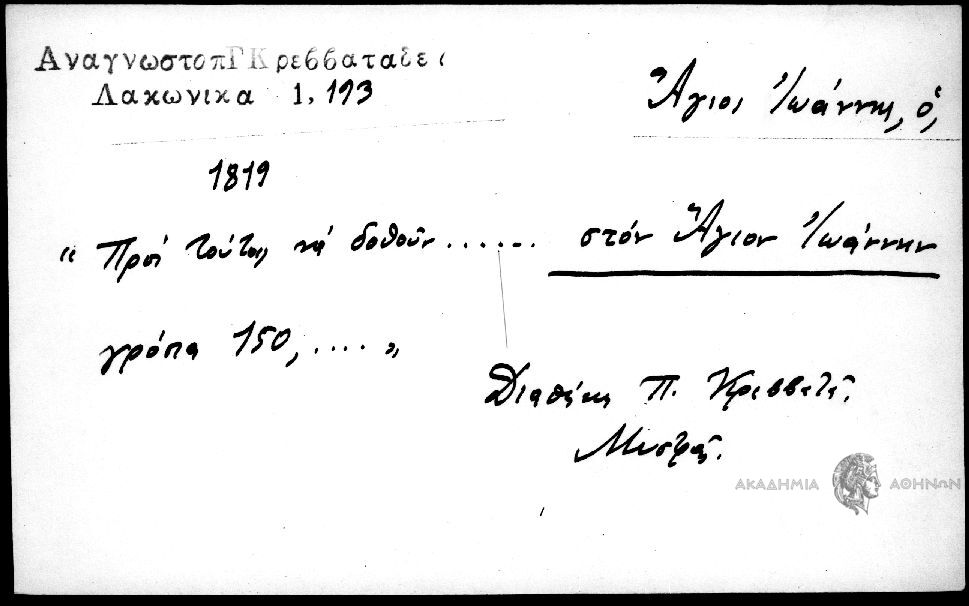 ΑναγνωστοπΓΚρεββαταδει
Λακωνικα 1, 193
Ἅγιος Ἰωάννης, ὁ,
1819
“ Πρὸς τούτοις νά δοθοῦν ...... στόν Ἅγιον Ἰωάννην
γρόσια 150, .... „
Διαθήκη Π. Κρεββατᾶ.
Μυστρᾶς.
ΑΚΑΔΗΜΙΑ ΑΘΗΝΩΝ